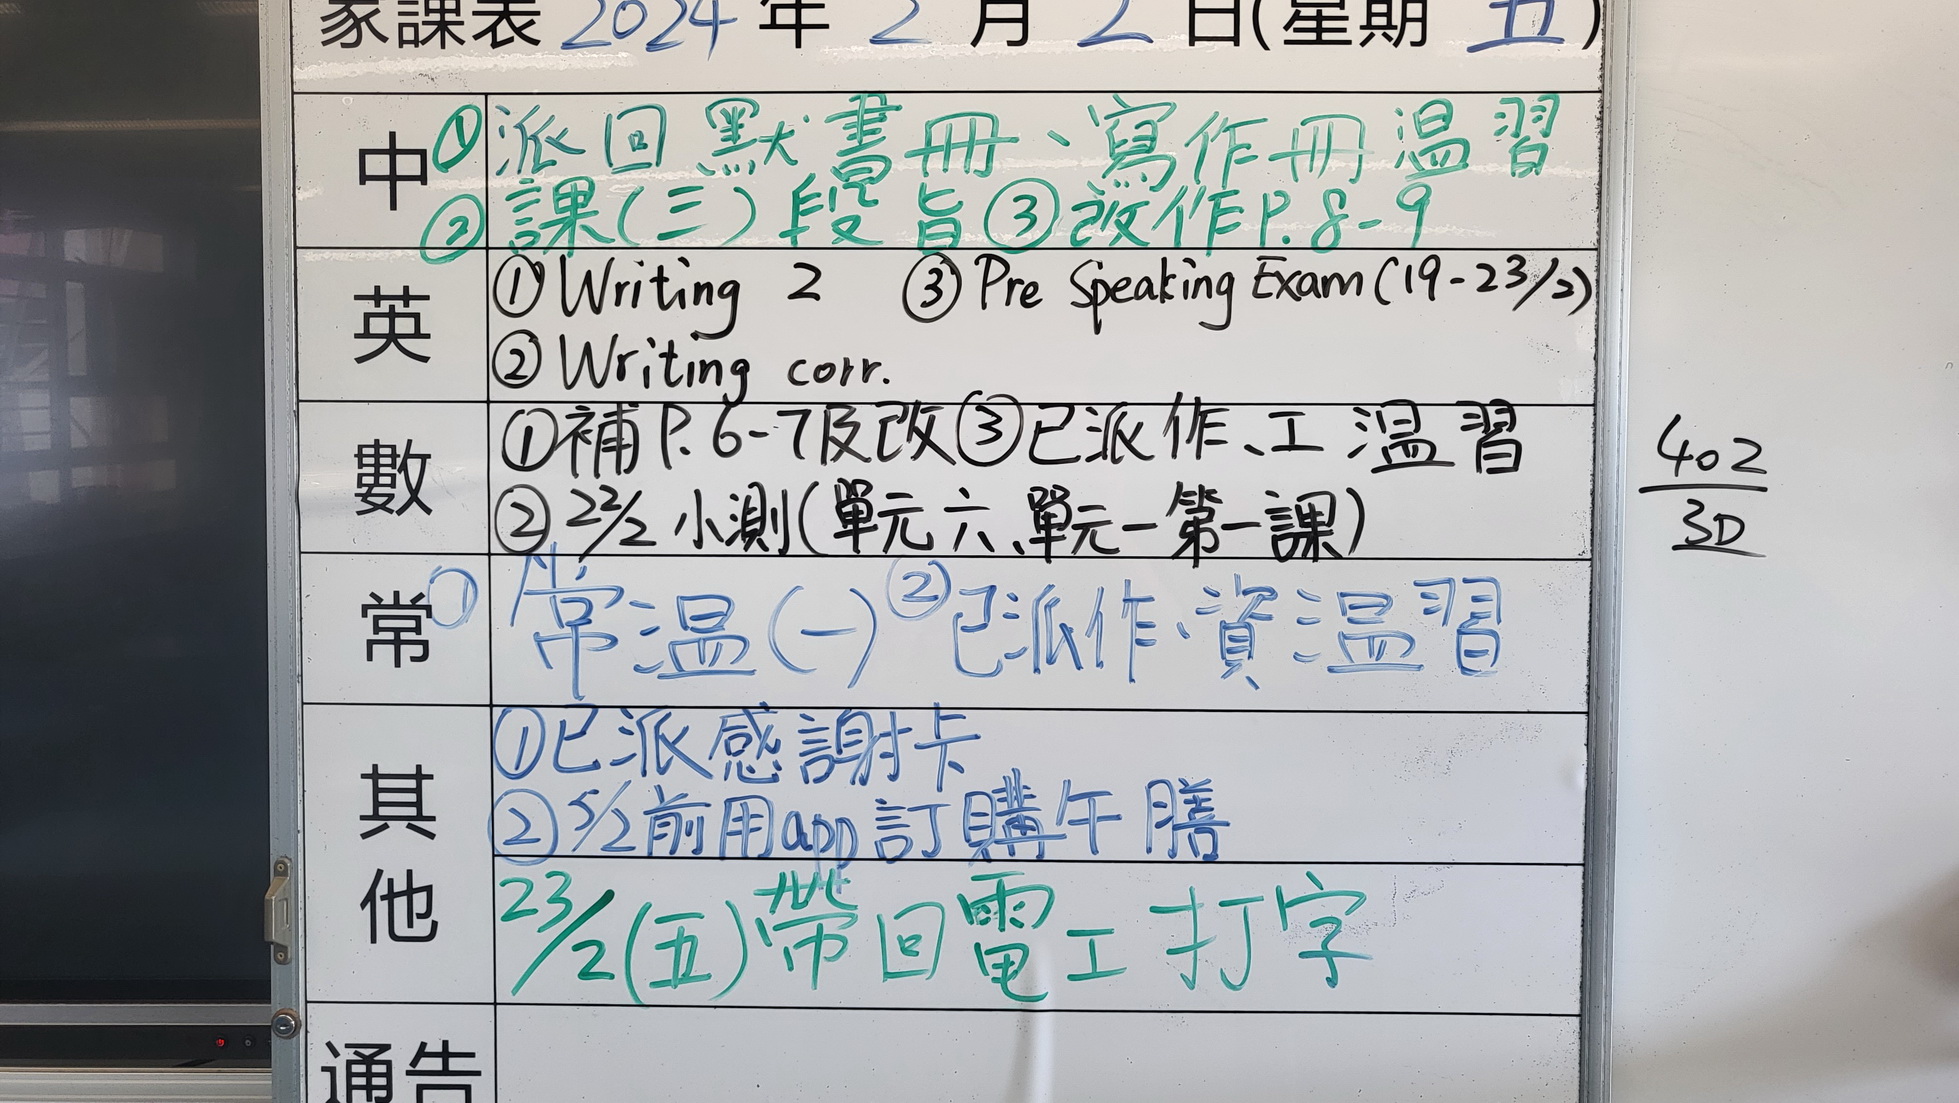 家課表 2024 年 2 月 2 日(星期 五)
中 ① 派回默書冊、寫作冊温習
② 課(三)段旨 ③ 改作P.8-9
英 ① Writing 2 ③ Pre Speaking Exam (19-23/2)
② Writing corr.
數 ① 補 P.6-7及改 ③ 已派作、工温習
② 22/2 小測(單元六、單元一第一課)
402
3D
常 ① 常温(一) ② 已派作、資温習
其他 ① 已派感謝卡
② 5/2前用app訂購午膳
23/2(五)帶回電工打字
通告